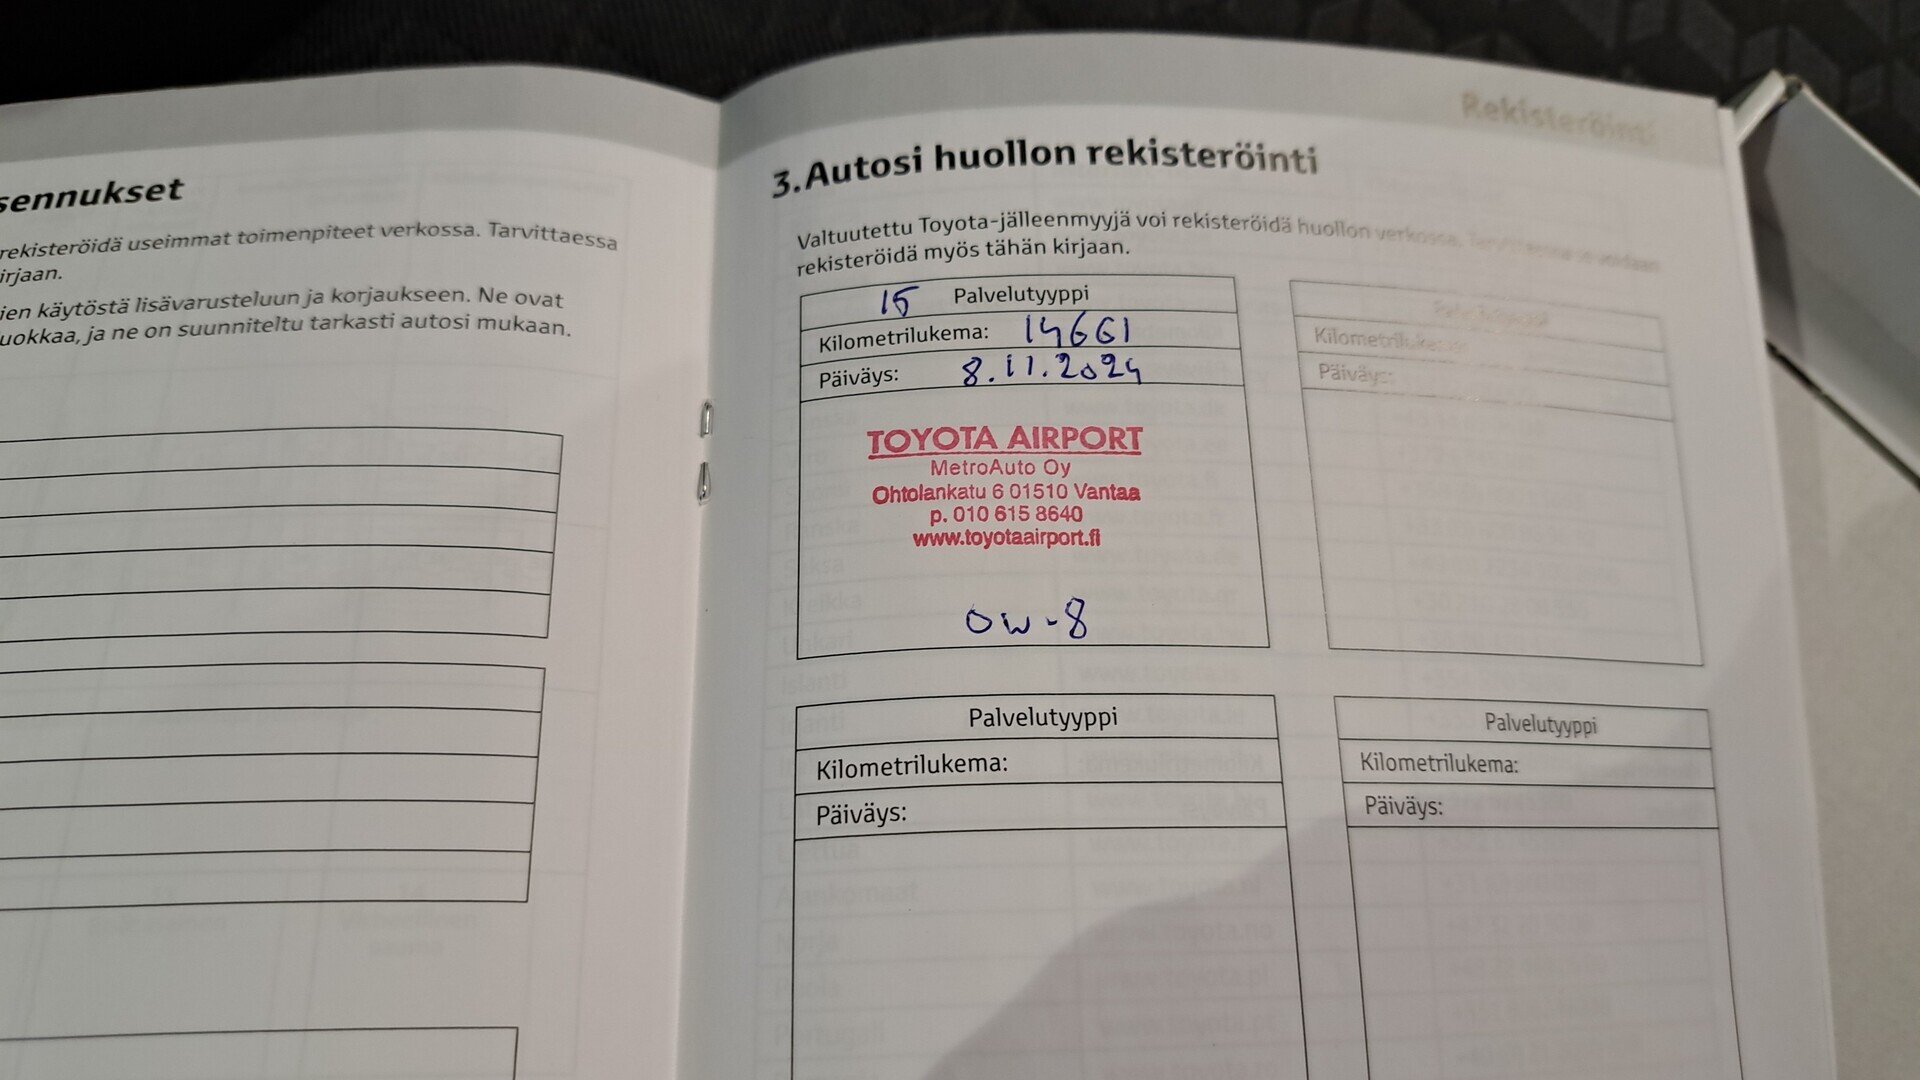 sennukset
rekisteröidä useimmat toimenpiteet verkossa. Tarvittaessa
irjaan.
ien käytöstä lisävarusteluun ja korjaukseen. Ne ovat
uokkaa, ja ne on suunniteltu tarkasti autosi mukaan.
Rekisteröinti
3. Autosi huollon rekisteröinti
Valtuutettu Toyota-jälleenmyyjä voi rekisteröidä huollon verkossa. Tarvittaessa se voidaan
rekisteröidä myös tähän kirjaan.
15 Palvelutyyppi
Kilometrilukema: 14661
Päiväys: 8.11.2024
TOYOTA AIRPORT
MetroAuto Oy
Ohtolankatu 6 01510 Vantaa
p. 010 615 8640
www.toyotaairport.fi
OW-8
Palvelutyyppi
Kilometrilukema:
Päiväys:
Palvelutyyppi
Kilometrilukema:
Päiväys:
Palvelutyyppi
Kilometrilukema:
Päiväys: